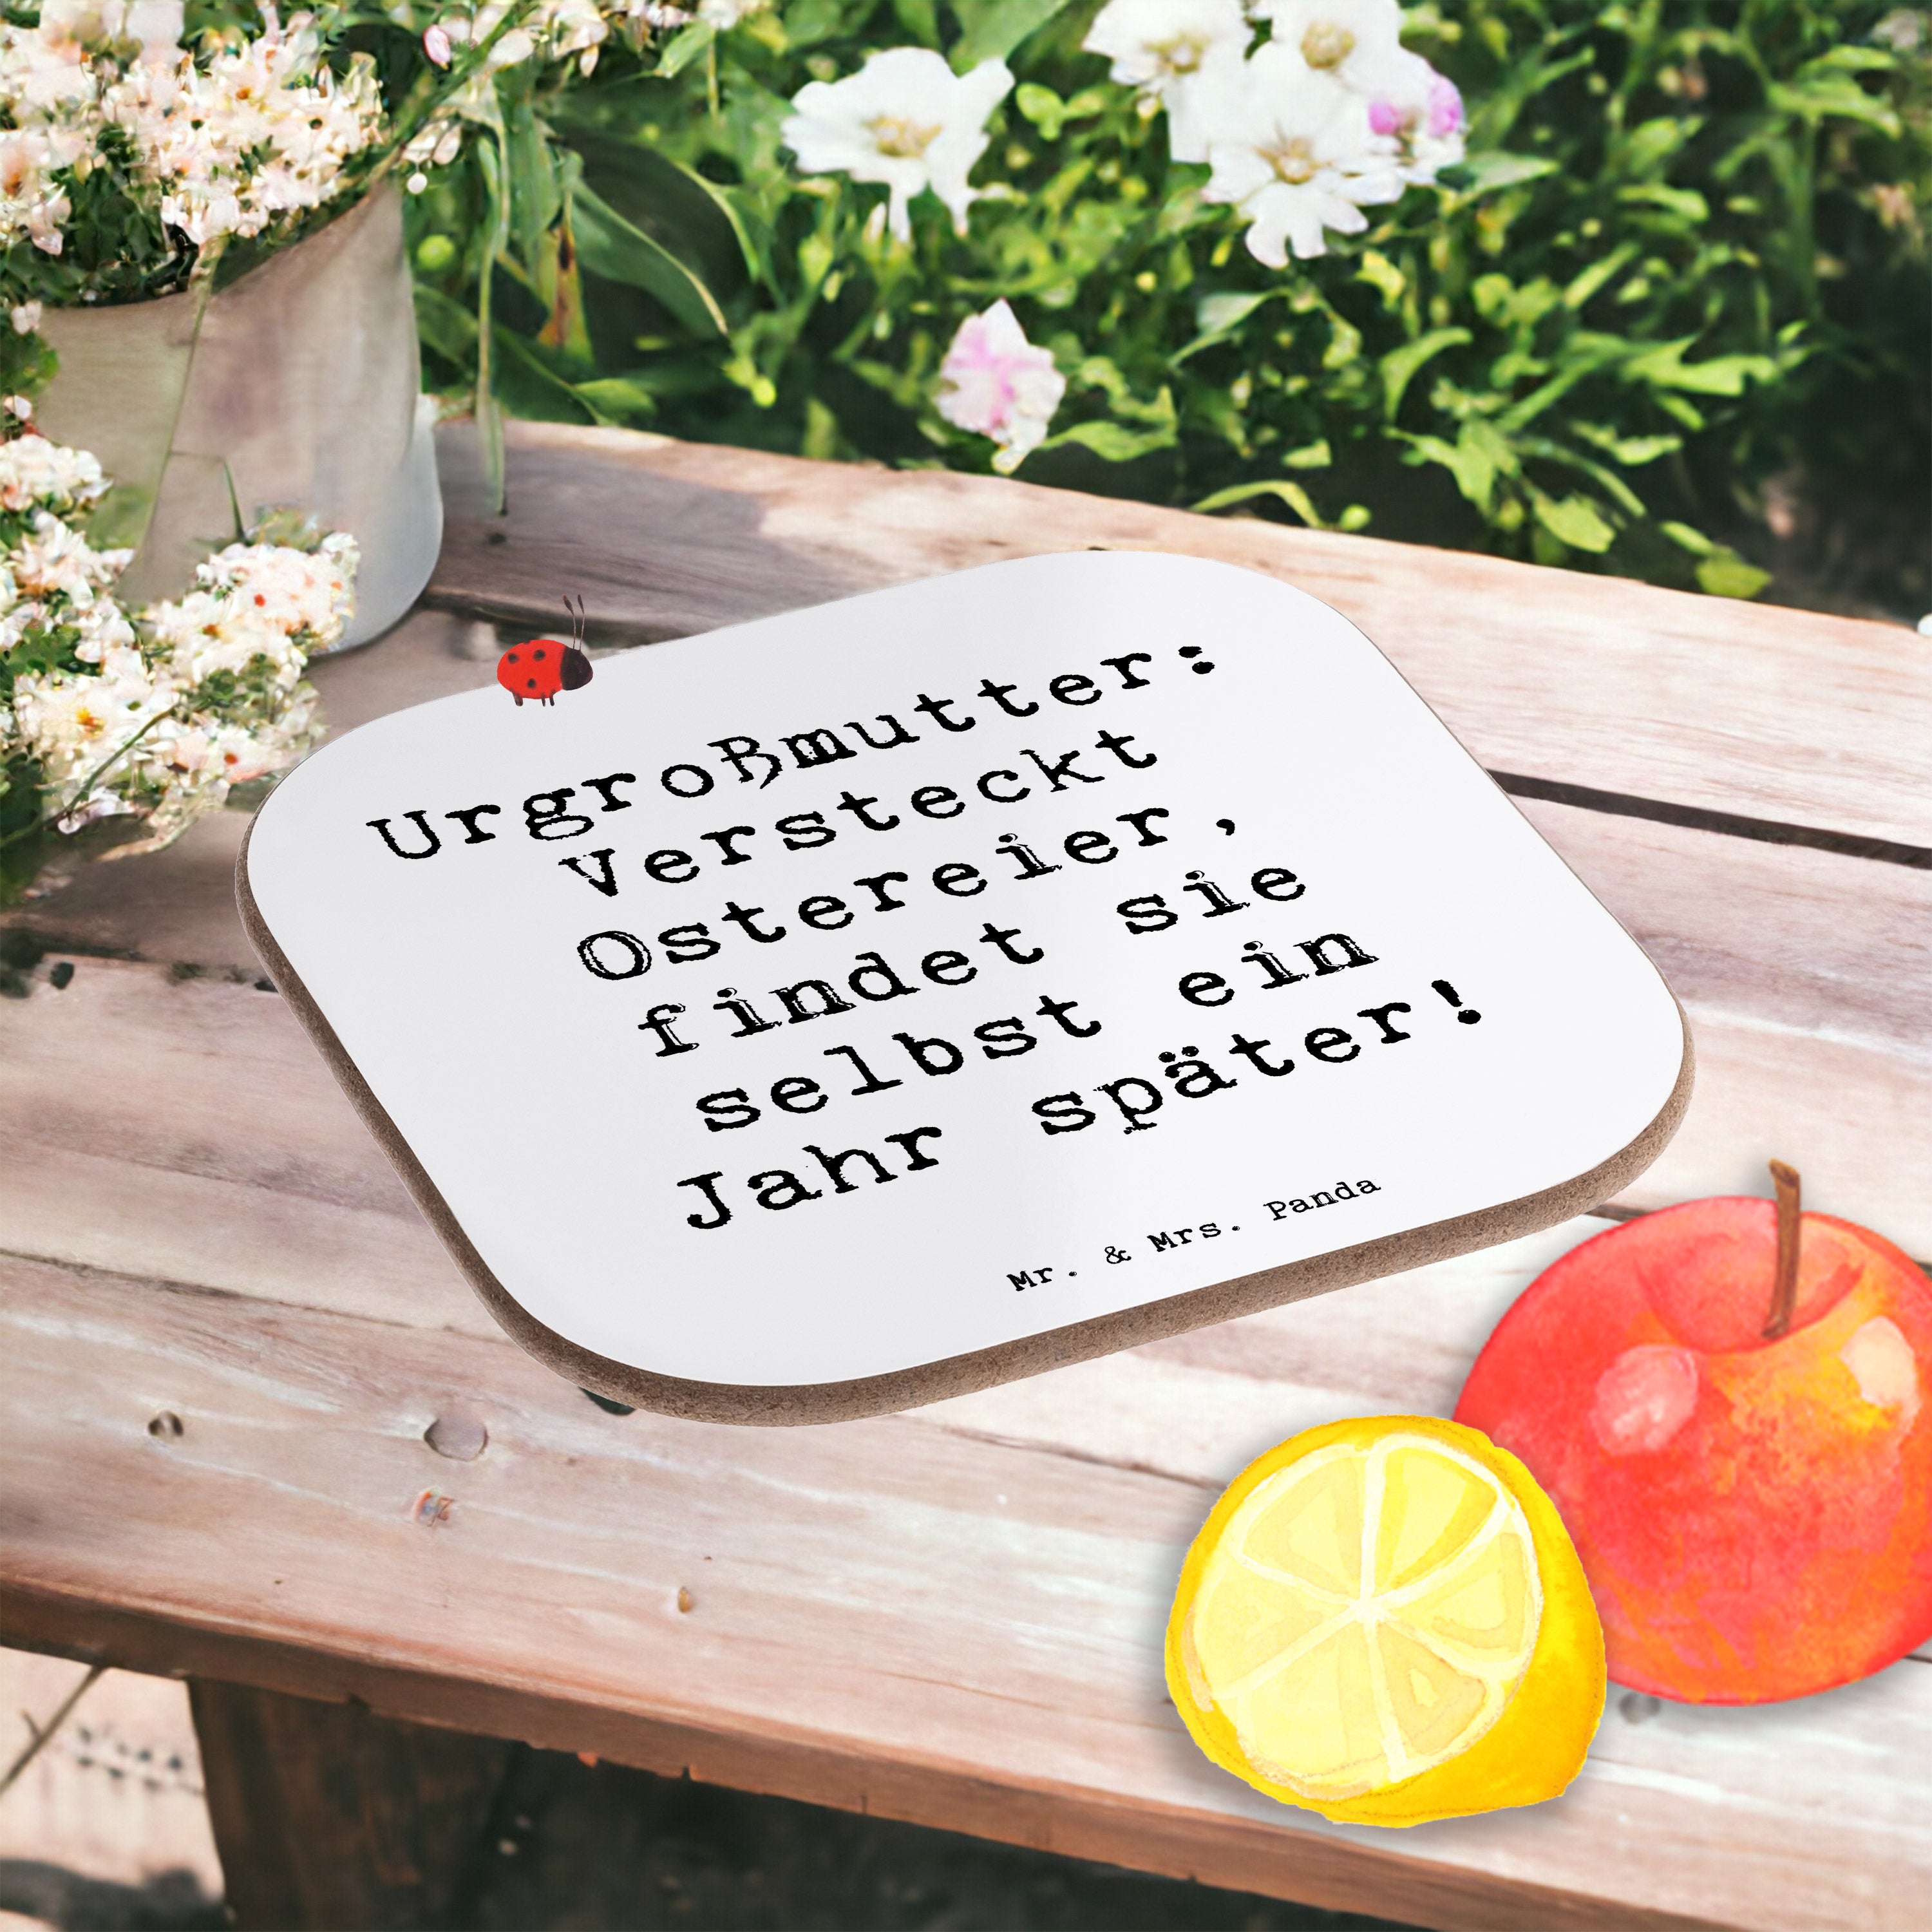 Urgroßmutter:
Versteckt
Ostereier,
findet sie
selbst ein
Jahr später!
Mr. & Mrs. Panda